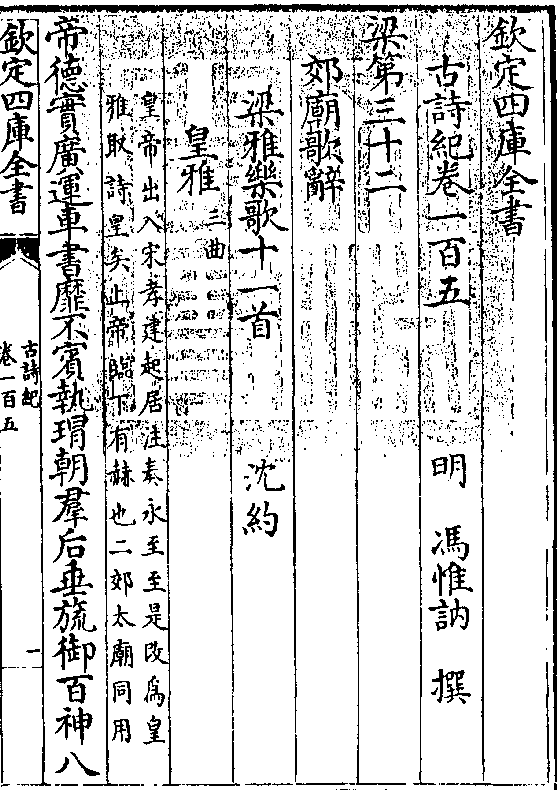 欽定四庫全書
古詩紀卷一百五
明 馮惟訥 撰
梁第三十二
郊廟歌辭
梁雅樂歌十一首 沈約
皇雅 三曲
皇帝出入宋孝建起居注奏永至至是改為皇
雅取詩皇矣止帝臨下有赫也二郊太廟同用
帝德實廣運車書靡不賓執瑁朝羣后垂旒御百神八
欽定四庫全書
古詩紀
卷一百五
一